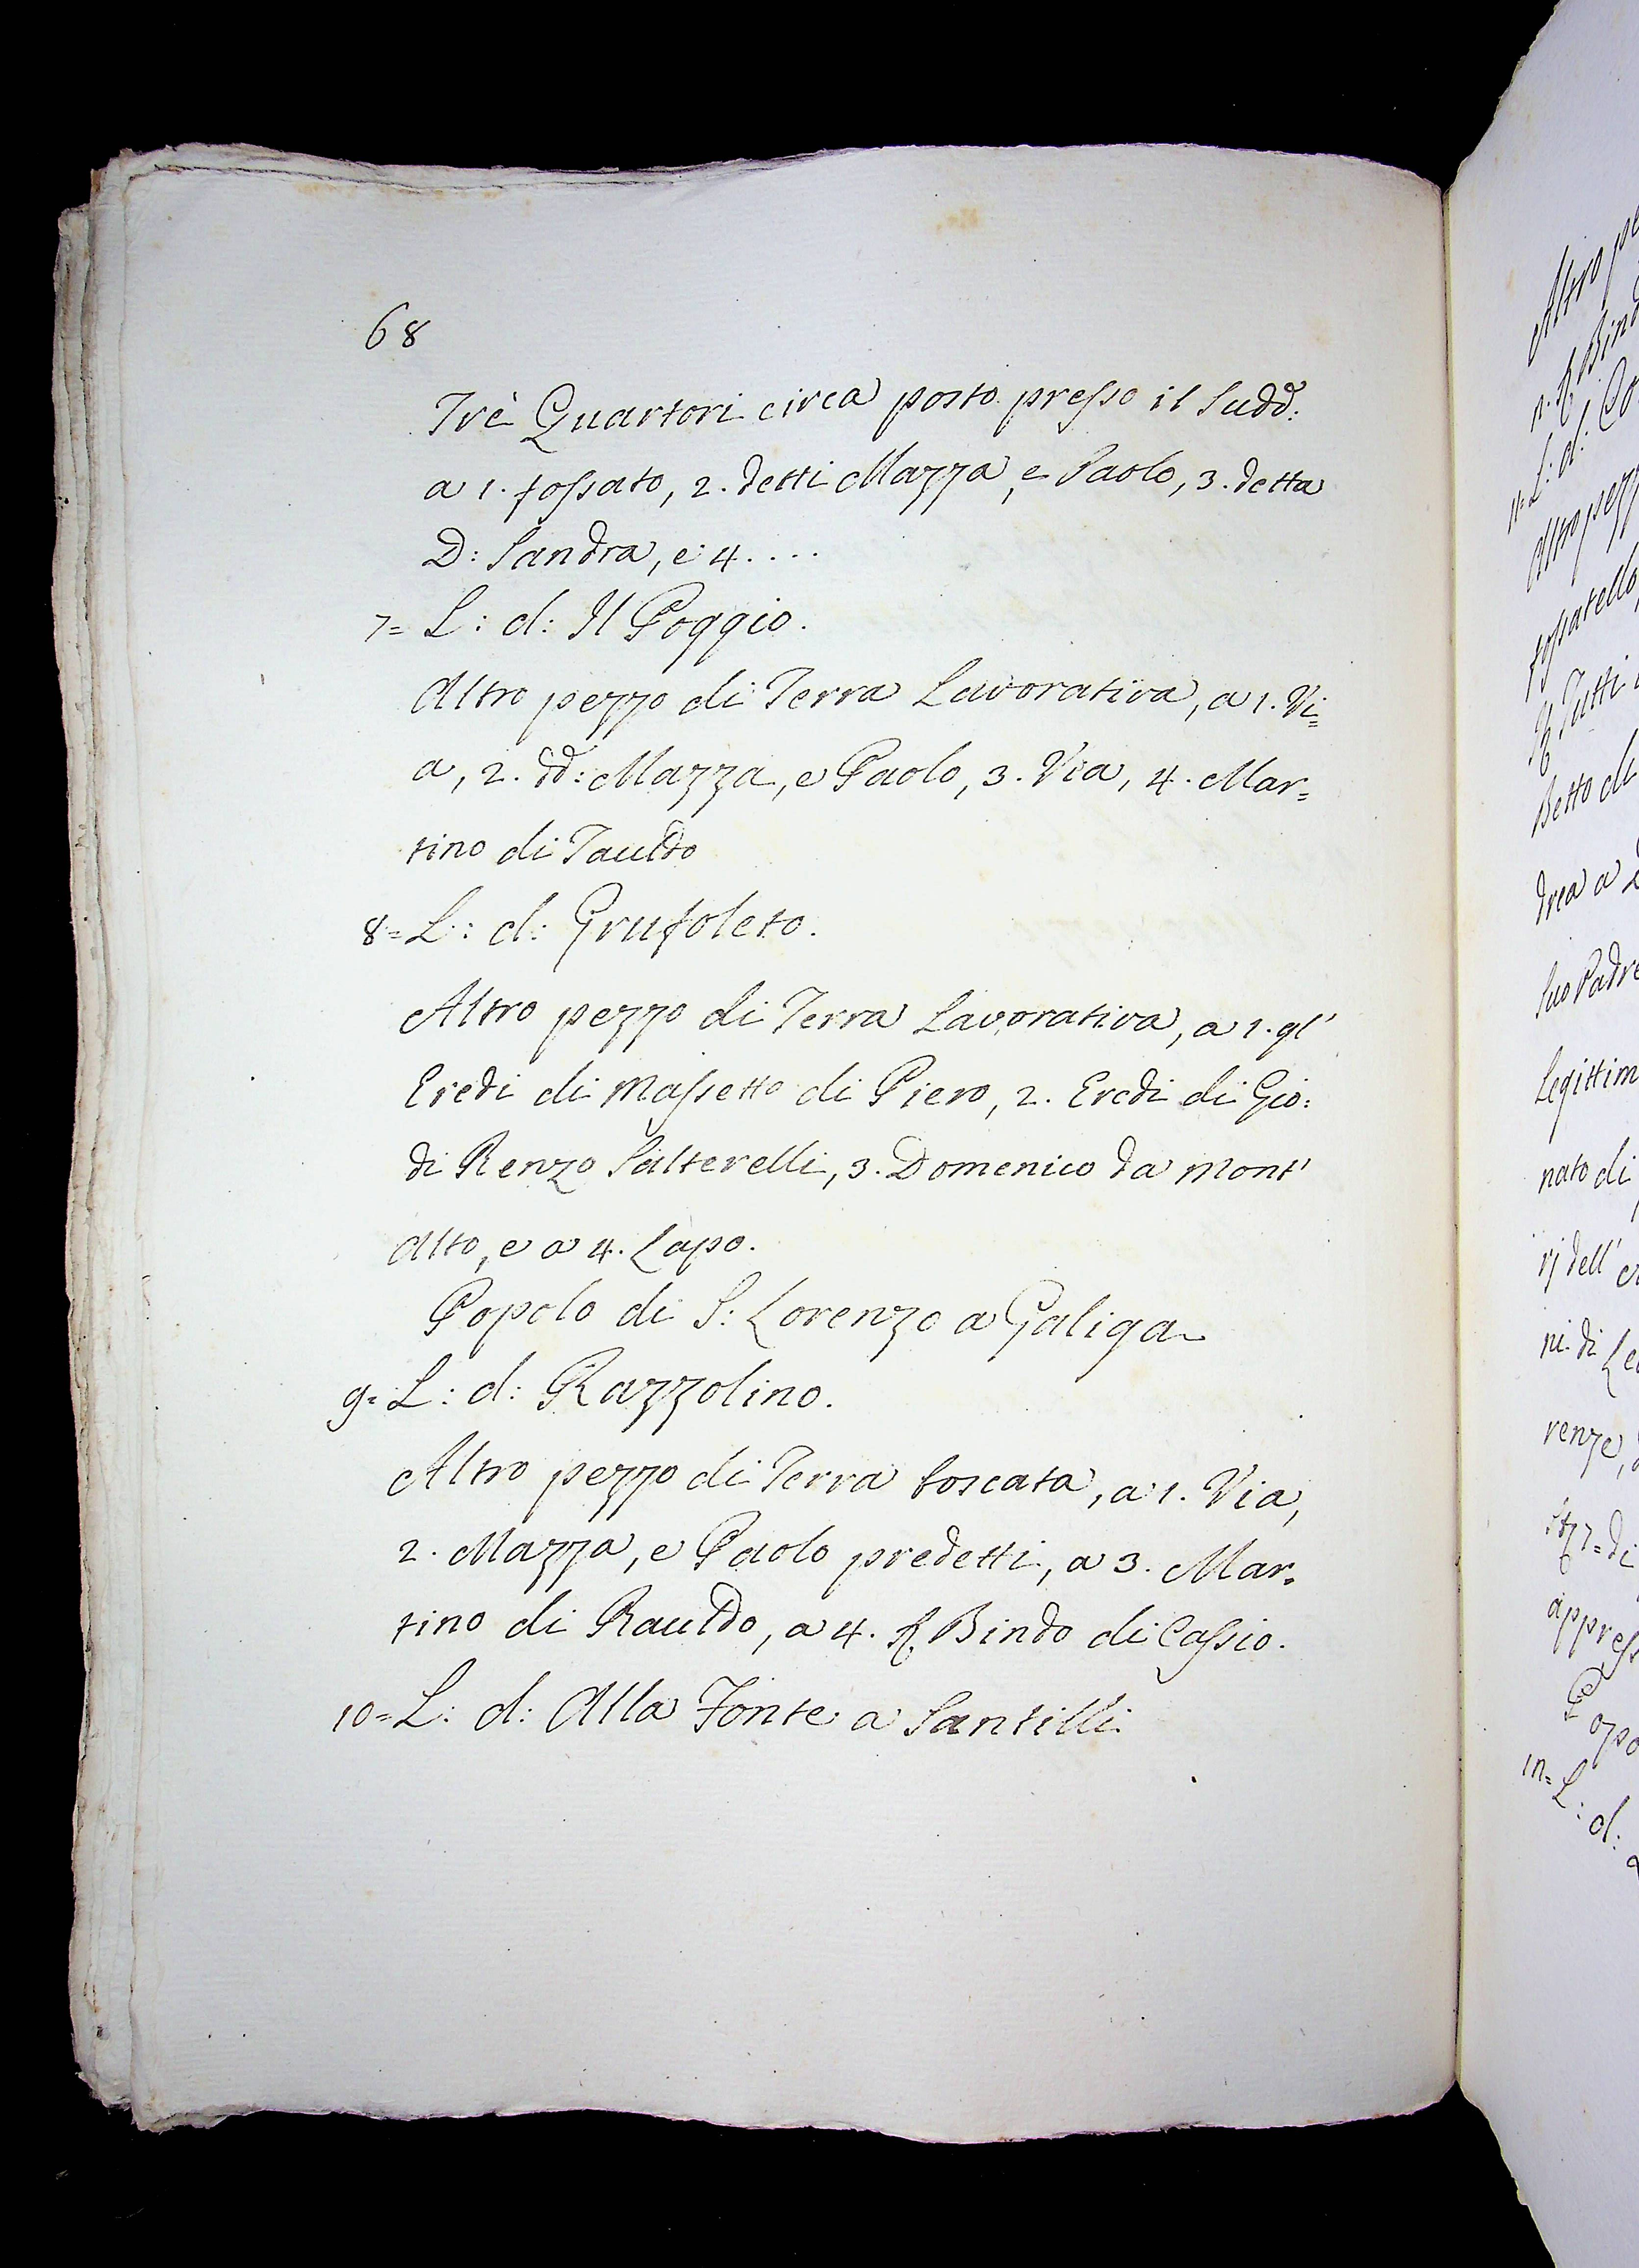 68
Trè Quartori circa posto presso il Sudd:
a 1. fossato, 2. detti Mazza, e Paolo, 3. detta
D: Sandra, e 4....
7= L: d: Il Poggio.
Altro pezzo di Terra Lavorativa, a 1. Vi=
a, 2. dd: Mazza, e Paolo, 3. Via, 4. Mar=
tino di Tauldo
8= L: d: Grufoleto.
Altro pezzo di Terra Lavorativa, a 1. gl'
Eredi di Massetto di Piero, 2. Eredi di Gio:
di Renzo Salterelli, 3. Domenico da Mont'
Alto, e a 4. Lapo.
Popolo di S: Lorenzo a Galiga
9= L: d: Razzolino.
Altro pezzo di Terra boscata, a 1. Via,
2. Mazza, e Paolo predetti, a 3. Mar=
tino di Rauldo, a 4. Bindo di Cassio.
10= L: d: Alla Fonte a Santilli
Altro
Bind
11= L: d: Co
Altro pezz
fossatello,
Tutti
Betto di
drea a
suo Padre
Legittim
nato di
rj dell'
ni di Le
renze,
appress
Popo
L: d: